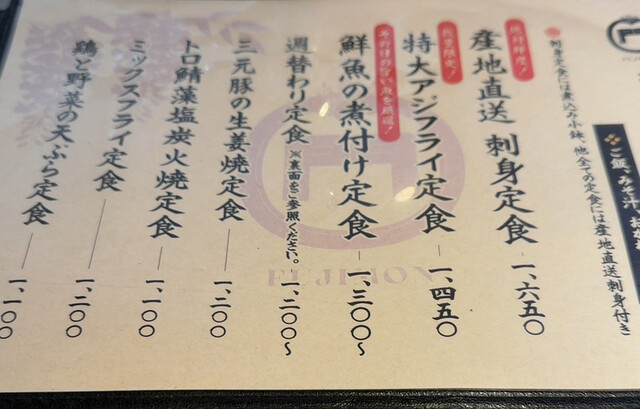 ご飯、みそ汁
刺身定食には煮込み小鉢、他全ての定食には産地直送刺身付き
抜群鮮度!
産地直送 刺身定食 一、六五〇
数量限定!
特大アジフライ定食 一、四五〇
その日の旨い魚を厳選!
鮮魚の煮付け定食 一、三〇〇〜
週替わり定食 ※裏面をご参照ください。 一、二〇〇〜
三元豚の生姜焼定食 一、二〇〇
トロ鯖藻塩炭火焼定食 一、一〇〇
ミックスフライ定食 一、二〇〇
鶏と野菜の天ぷら定食 一、一〇〇